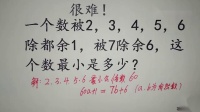 很难！
一个数被2，3，4，5，6
除都余1，被7除余6，这
个数最小是多少？
解：2.3.4.5.6最小公倍数60
60a+1=7b+6（a.b为自然数）